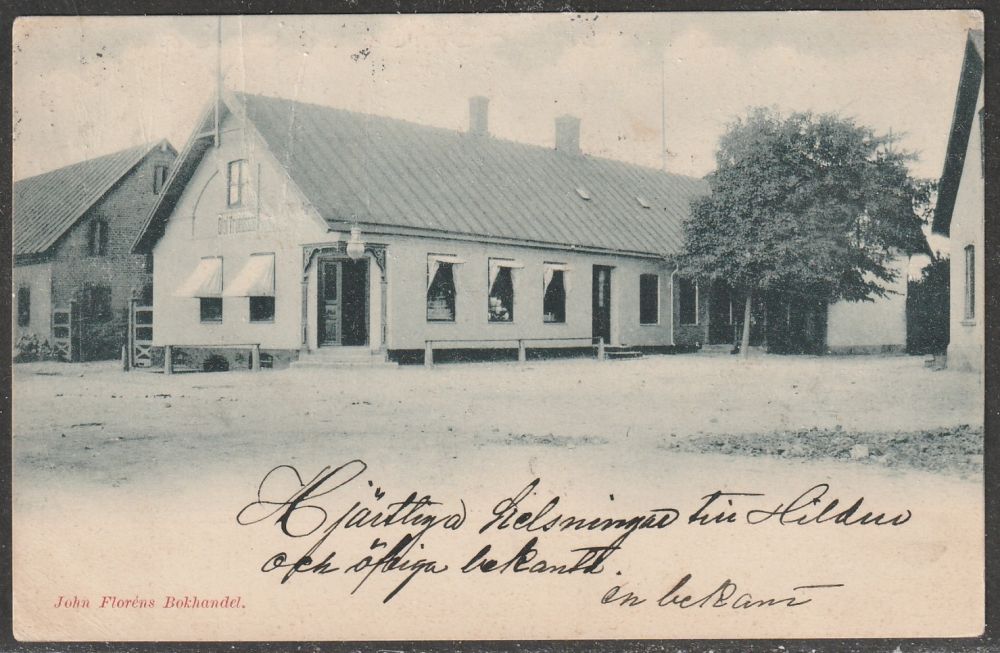 Hjärtliga helsningar till Hildur
och öfriga bekanta.
en bekant
John Floréns Bokhandel.